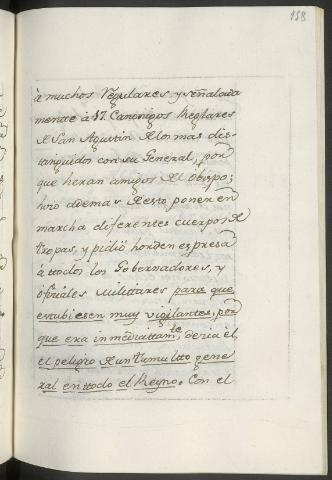 158
à muchos Regulares, y señalada
mente à 17. Canonigos Reglares
de San Agustin de los mas dis-
tinguidos con su General, por
que heran amigos del Obispo;
hizo ademas de esto poner en
marcha diferentes cuerpos de
tropas, y pidió horden espresa
á ttodos los Gobernadores, y
ofiziales militares para que
estubiesen muy vigilantes, por
que era inmediattamte, decia él,
el peligro de un tumultto gene
ral en ttodo el Reyno. Con el